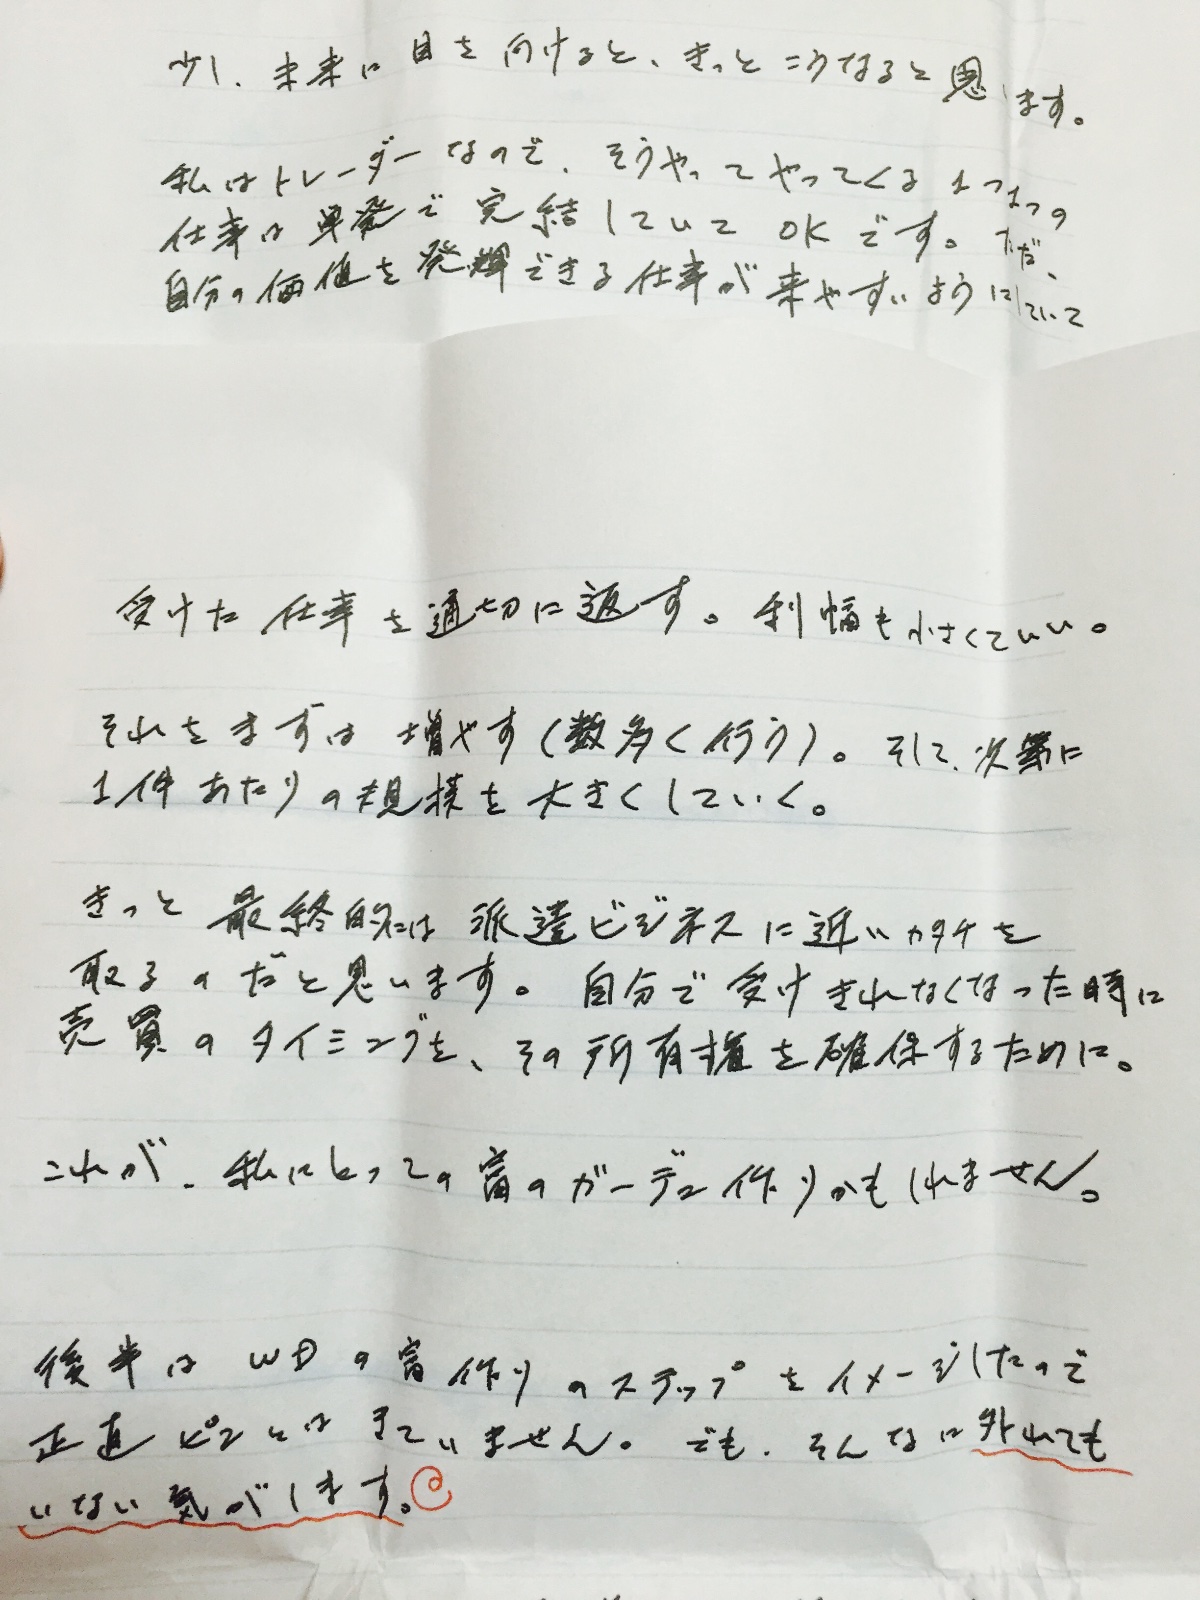 少し、未来に目を向けると、きっとこうなると思います。
私はトレーダーなので、そうやってやってくる1つ1つの
仕事は単発で完結していてOKです。ただ、
自分の価値を発揮できる仕事が来やすいようにしていて
受けた仕事を適切に返す。利幅も小さくていい。
それをまずは増やす(数多く行う)。そして、次第に
1件あたりの規模を大きくしていく。
きっと最終的には派遣ビジネスに近いカタチを
取るのだと思います。自分で受けきれなくなった時に
売買のタイミングを、その所有権を確保するために。
これが、私にとっての富のガーデン作りかもしれません。
後半はWDの富作りのステップをイメージしたので
正直ピンとはきていません。でも、そんなに外れても
いない気がします。